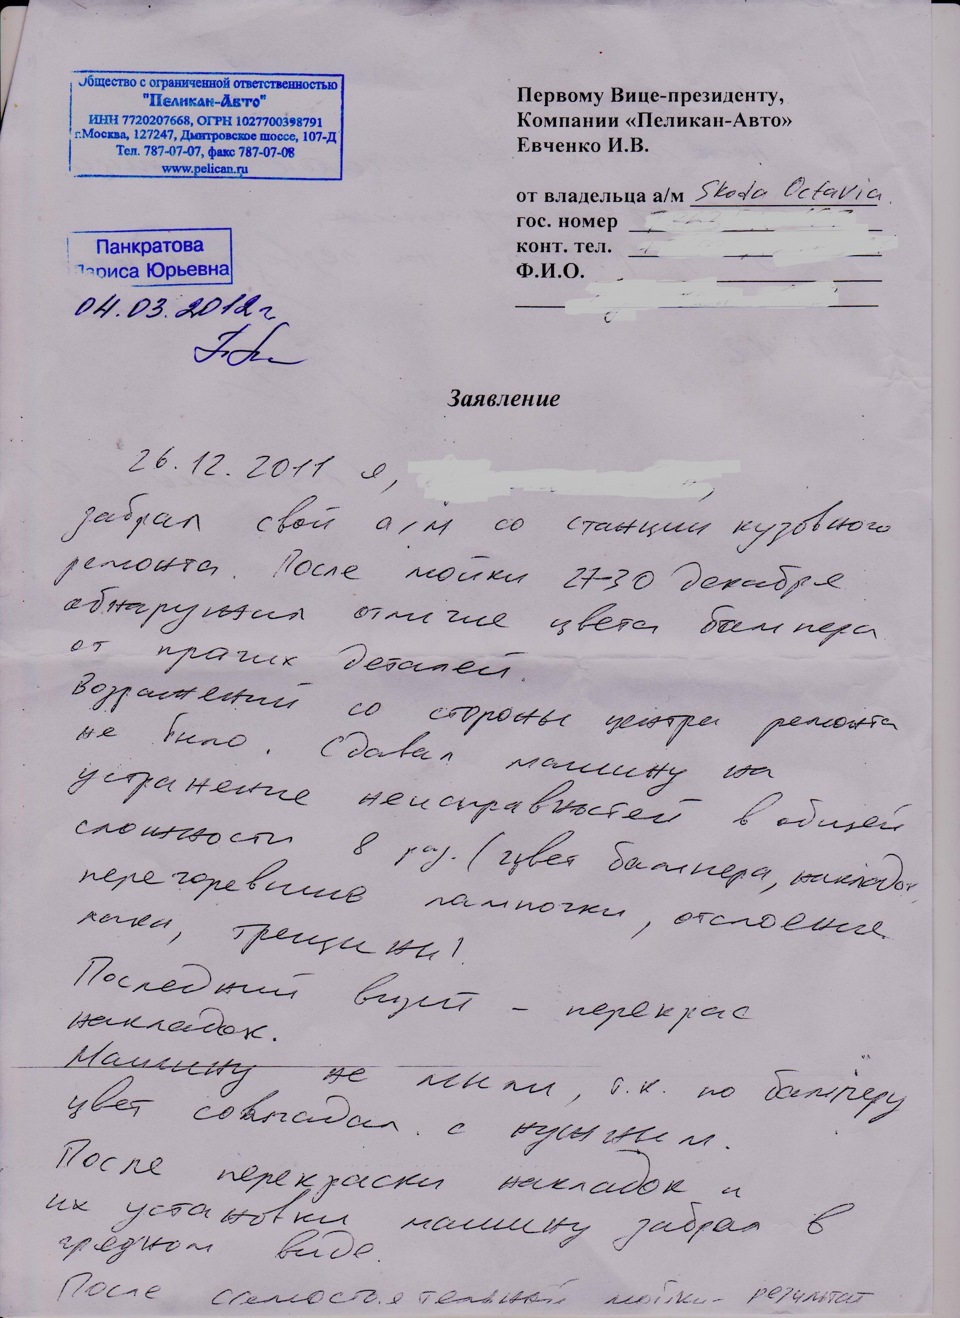 Общество с ограниченной ответственностью
"Пеликан-Авто"
ИНН 7720207668, ОГРН 1027700398791
г.Москва, 127247, Дмитровское шоссе, 107-Д
Тел. 787-07-07, факс 787-07-08
www.pelican.ru
Панкратова
Лариса Юрьевна
04.03.2012г
Первому Вице-президенту,
Компании «Пеликан-Авто»
Евченко И.В.
от владельца а/м Skoda Octavia
гос. номер
конт. тел.
Ф.И.О.
Заявление
26.12.2011 я,
забрал свой а/м со станции кузовного
ремонта. После мойки 27-30 декабря
обнаружил отличие цвета бампера
от прочих деталей.
Возражений со стороны центра ремонта
не было. Сдавал машину на
устранение неисправностей в общей
сложности 8 раз. (цвет бампера, накладок,
перегоревшие лампочки, отслоение
лака, трещины)
Последний визит - перекрас
накладок.
Машину не мыли, т.к. по бамперу
цвет совпадал с нужным.
После перекраски накладок и
их установки машину забрал в
грязном виде.
После самостоятельной мойки - результат